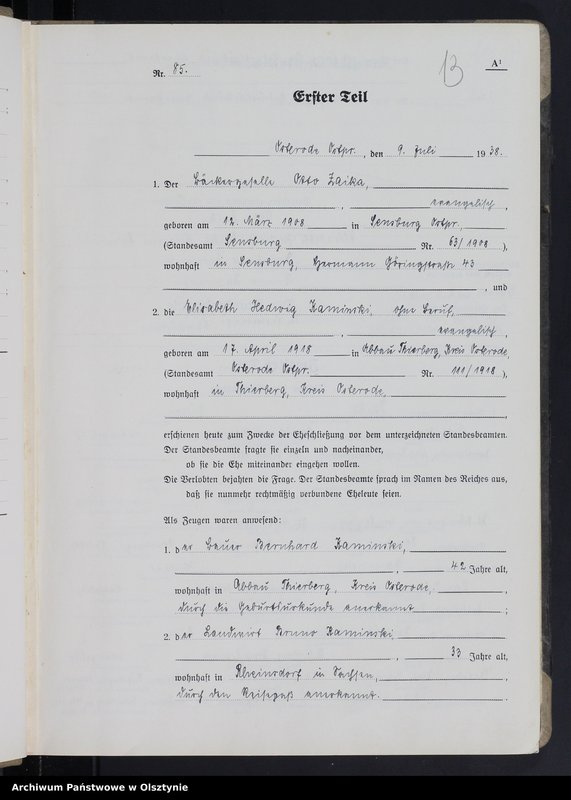 13
Nr. 85.
A¹
Erster Teil
Osterode Ostpr. , den 9. Juli 1938.
1. Der Bäckergeselle Otto Zaika,
, evangelisch ,
geboren am 12. März 1908 in Sensburg Ostpr.,
(Standesamt Sensburg Nr. 63/1908 ),
wohnhaft in Sensburg, Hermann Göringstraße 43
, und
2. die Elisabeth Hedwig Kaminski, ohne Beruf,
, evangelisch ,
geboren am 17. April 1918 in Abbau Thierberg, Kreis Osterode,
(Standesamt Osterode Ostpr. Nr. 111/1918 ),
wohnhaft in Thierberg, Kreis Osterode,
erschienen heute zum Zwecke der Eheschließung vor dem unterzeichneten Standesbeamten.
Der Standesbeamte fragte sie einzeln und nacheinander,
ob sie die Ehe miteinander eingehen wollen.
Die Verlobten bejahten die Frage. Der Standesbeamte sprach im Namen des Reiches aus,
daß sie nunmehr rechtmäßig verbundene Eheleute seien.
Als Zeugen waren anwesend:
1. der Bauer Bernhard Kaminski,
, 42 Jahre alt,
wohnhaft in Abbau Thierberg, Kreis Osterode, ,
durch die Geburtsurkunde anerkannt ;
2. der Landwirt Bruno Kaminski,
, 33 Jahre alt,
wohnhaft in Rheinsdorf in Sachsen, ,
durch den Reisepaß anerkannt. .
Archiwum Państwowe w Olsztynie